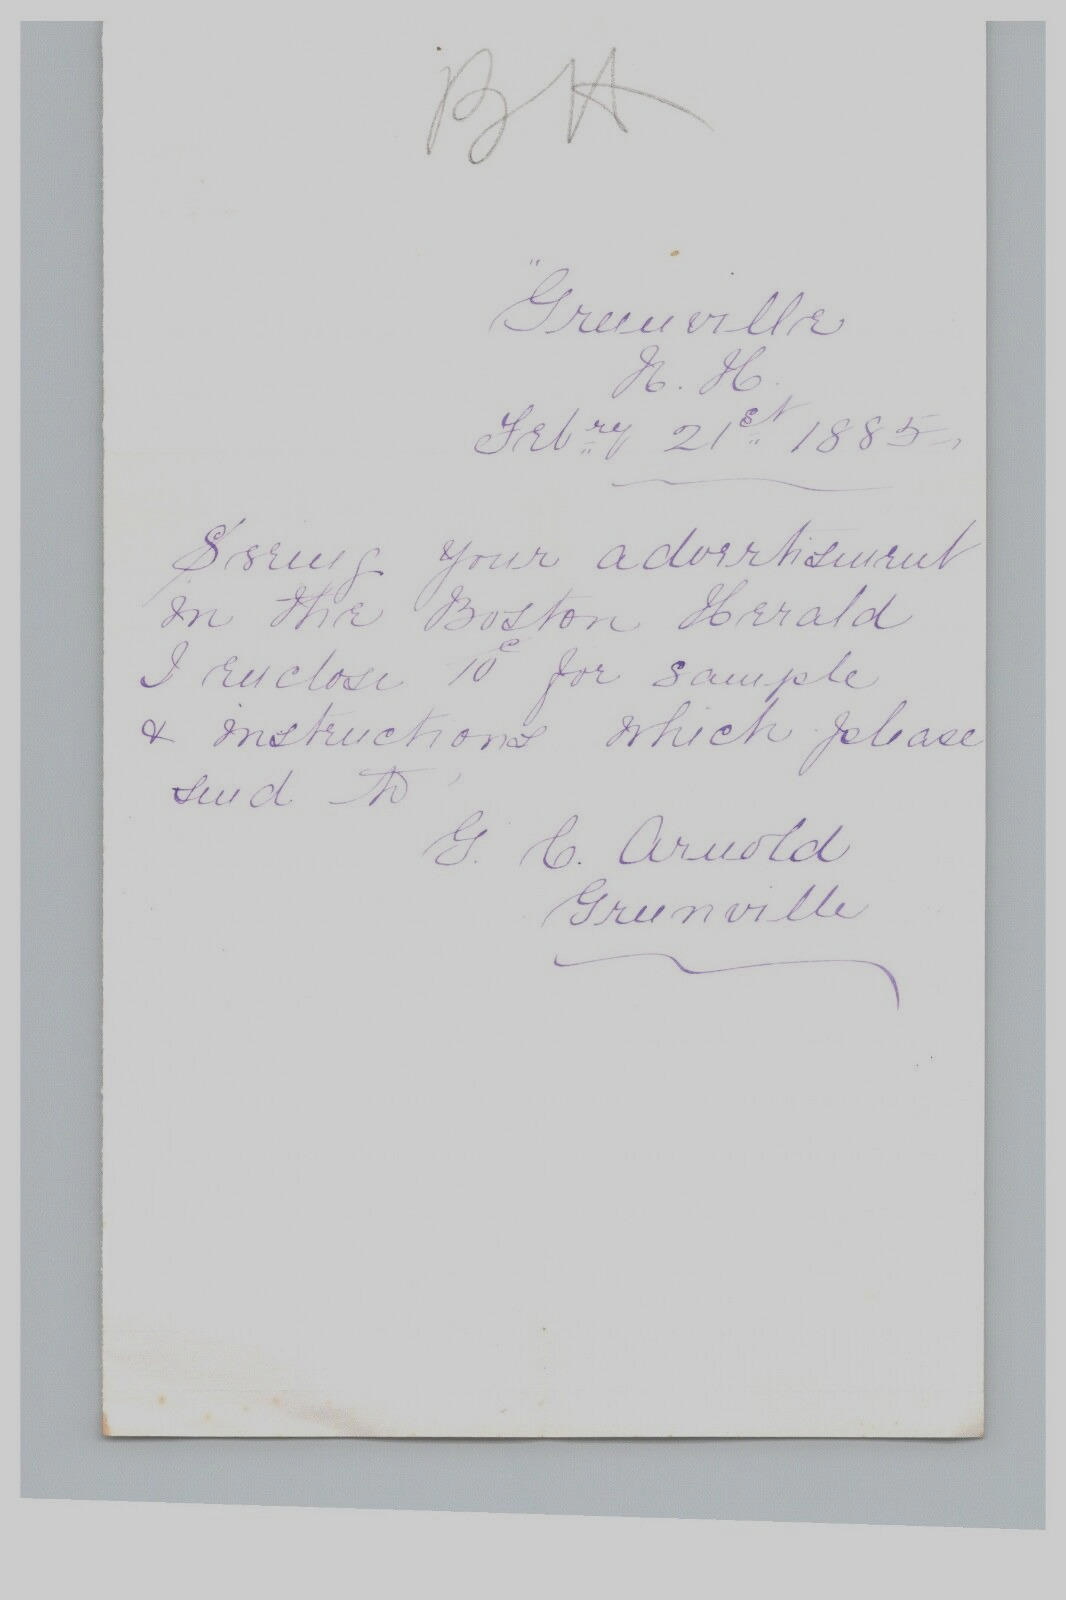 BH
"Greenville
N. H.
Febry 21st 1885
Seeing your advertisment
in the Boston Herald
I enclose 10c for sample
& instructions which please
send to
G. C. Arnold
Greenville